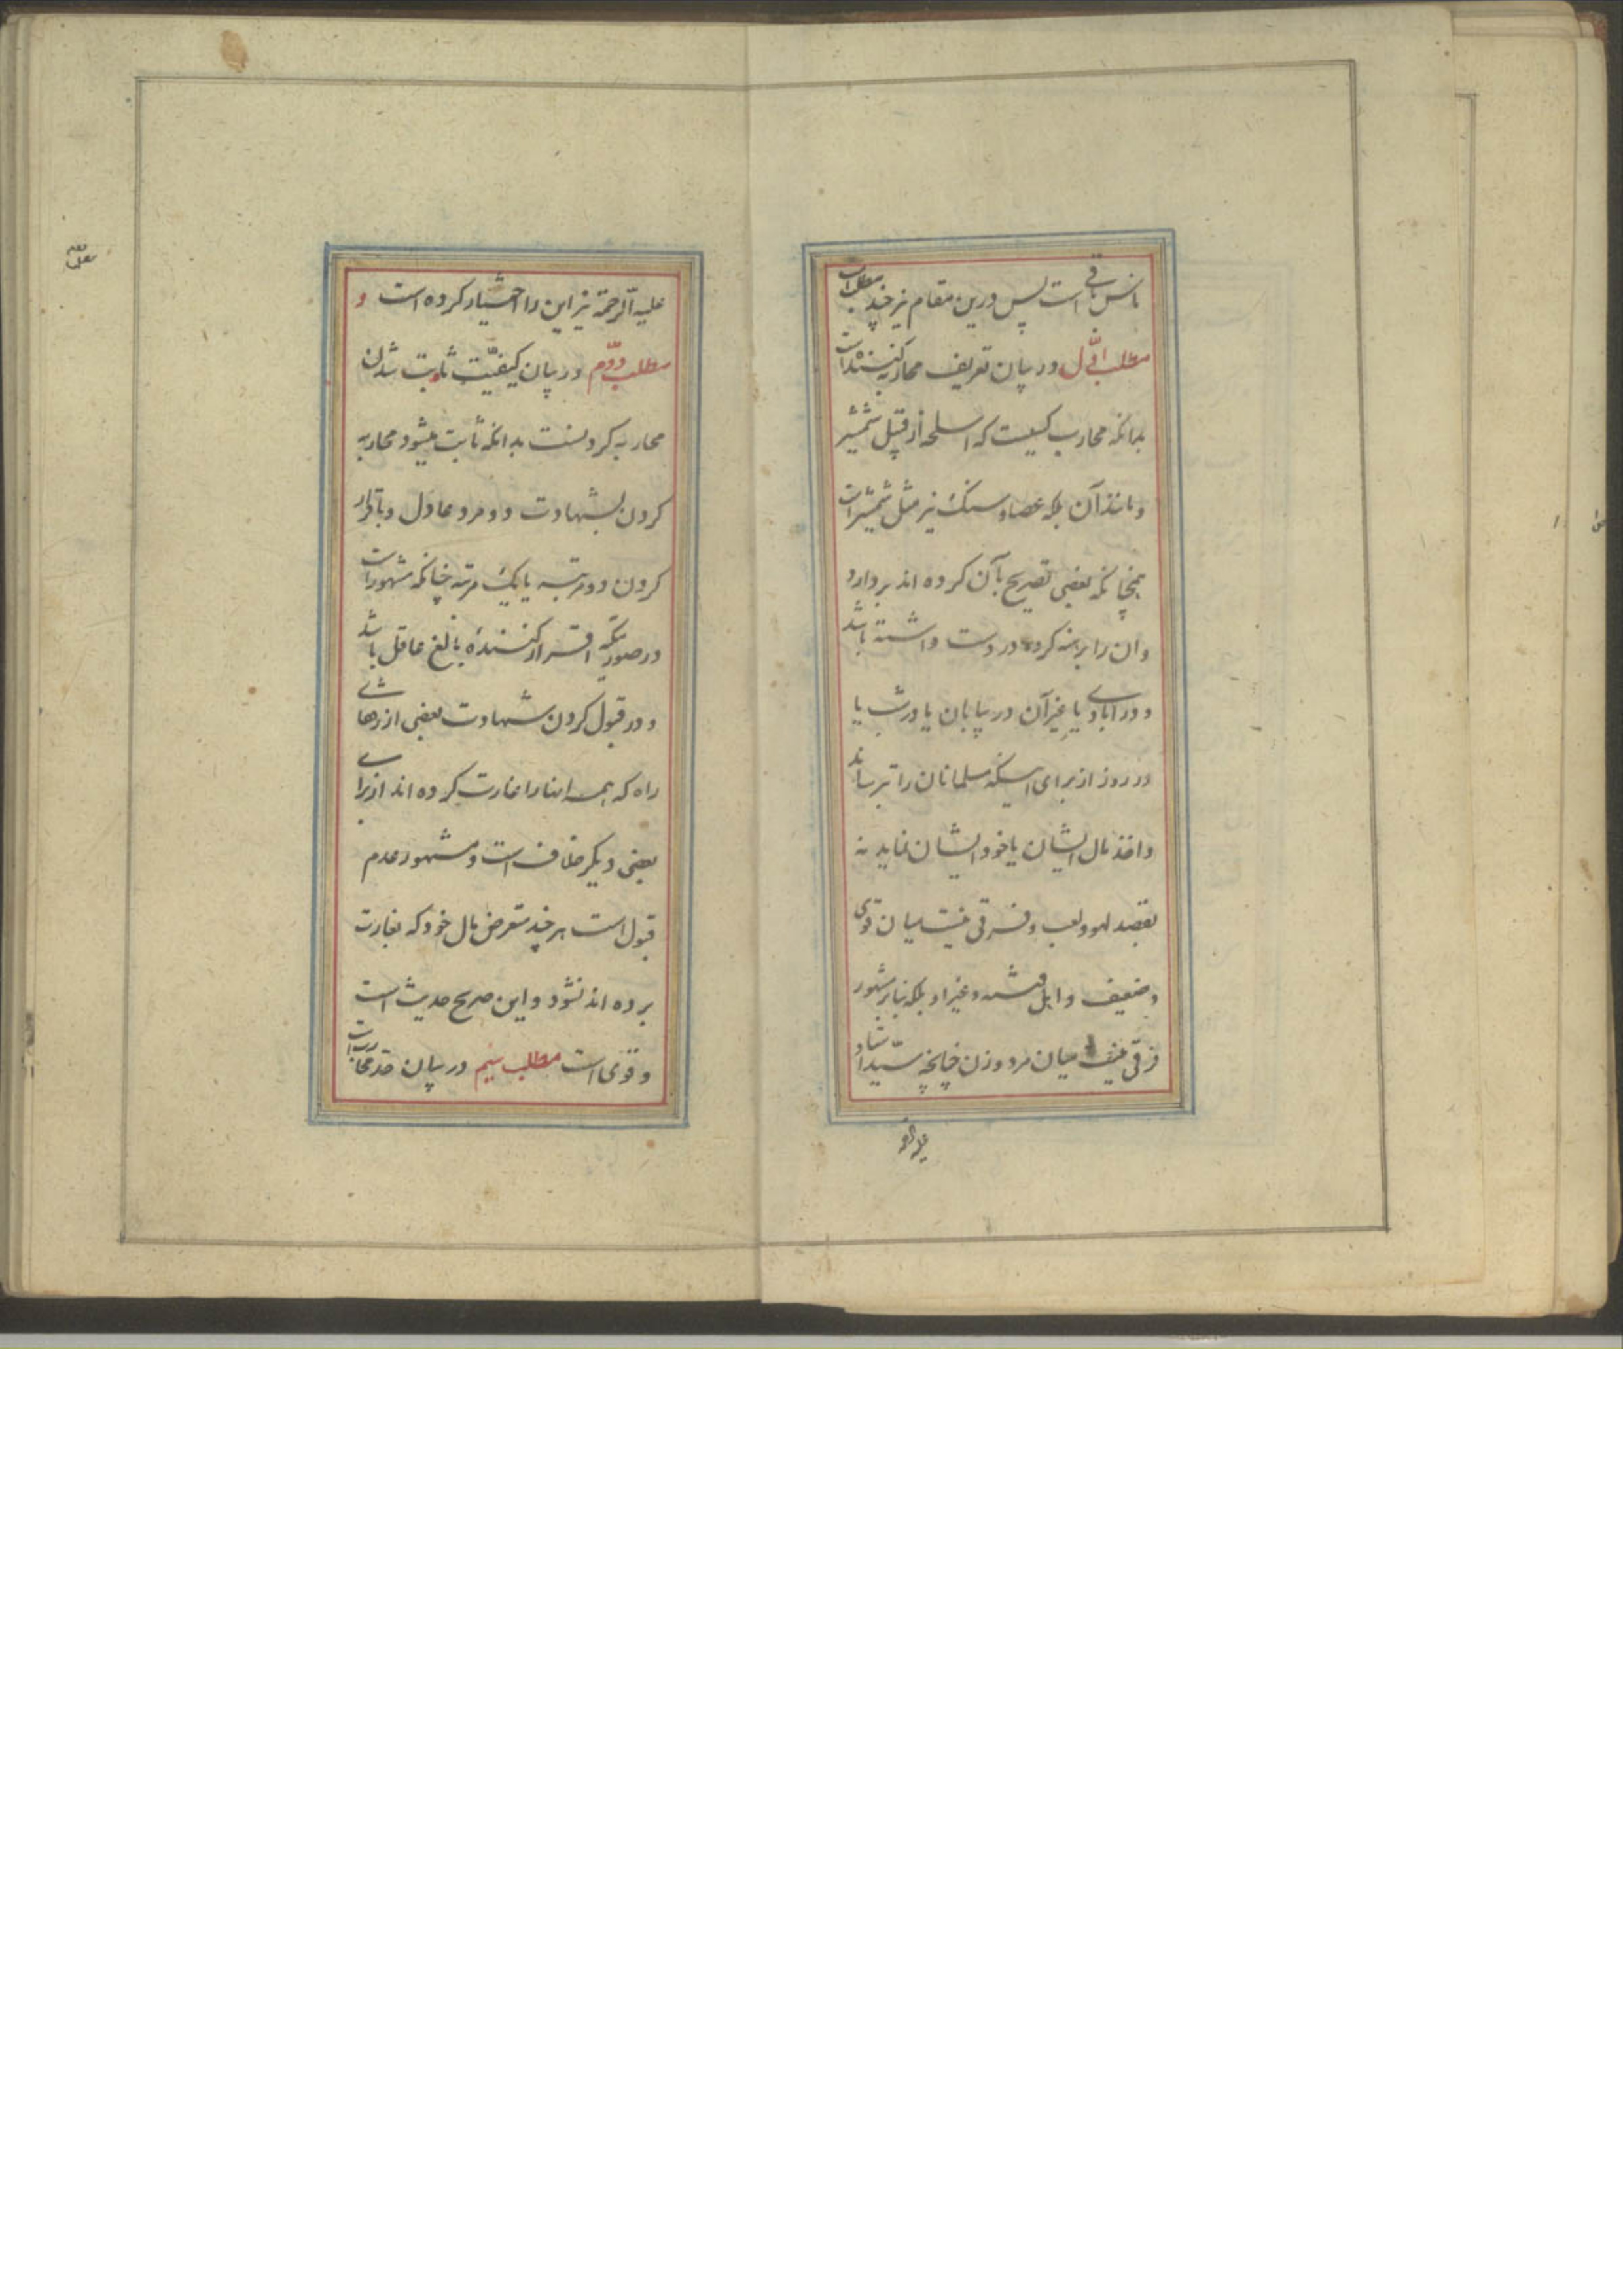 مانس باقی است پس درین مقام نیز چند مطلب است
مطلب اوّل در بیان تعریف محاربه کننده است
بدانکه محارب کسیست که اسلحه از قبیل شمشیر
و مانند آن بلکه عصا و سنک نیز مثل شمشیر است
همچنانکه بعضی تصریح بآن کرده اند بردارد
و ان را برهنه کرده در دست داشته باشد
و در ابادی یا غیر آن در بیابان یا در شب یا
در روز از برای اینکه مسلمانان را بترساند
و اخذ مال ایشان یا خود ایشان نماید نه
بقصد لهو و لعب و فرقی نیست میان قوی
و ضعیف و اهل فتنه و غیر او بلکه بنا بر مشهور
فرقی نیست میان مرد و زن چنانچه سیّد استاد
علیه الرحمه
علیه الرّحمه نیز این را اختیار کرده است و
مطلب دوّم در بیان کیفیّت ثابت شدن
محاربه کردنست بدانکه ثابت میشود محاربه
کردن بشهادت دو مرد عادل و باقرار
کردن دو مرتبه یا یک مرتبه چنانکه مشهور است
در صورتیکه اقرار کنندهٔ بالغ عاقل باشد
و در قبول کردن شهادت بعضی از زدهای
راه که همه اینها را غارت کرده اند از برای
بعضی دیکر خلاف است و مشهور عدم
قبول است هر چند متعرض مال خود که بغارت
برده اند نشود و این صریح حدیث است
و قوی است مطلب سیم در بیان حد محارب است